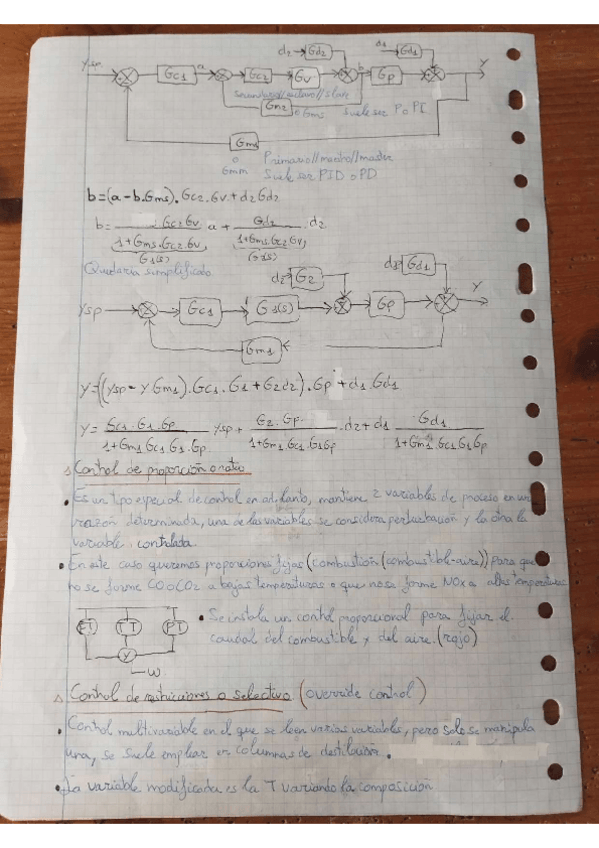 d2 Gd2 d1 Gd1
Ysp Gc1 a Gc2 Gv b Gp Y
secundario//esclavo//slave
Gm2 o Gms Suele ser P o PI
Gm1
o Gmm Primario//maestro//master
Suele ser PID o PD
b=(a-b.Gms).Gc2.Gv+d2Gd2
b= Gc2Gv / 1+Gms.Gc2.Gv a + Gd2 / 1+Gms.Gc2Gv . d2
G1(s) G2(s)
Quedaría simplificado
d2 G2 d1 Gd1
Ysp Gc1 G1(s) Gp Y
Gm1
y=((ysp-y.Gm1).Gc1.G1+G2d2).Gp+d1.Gd1
y= Gc1.G1.Gp / 1+Gm1Gc1.G1.Gp. ysp+ G2.Gp. / 1+Gm1.Gc1.G1Gp .d2+d1 Gd1 / 1+Gm1Gc1G1Gp
Control de proporción o ratio
• Es un tipo especial de control en adelanto, mantiene 2 variables de proceso en una
razón determinada, una de las variables se considera perturbación y la otra la
variable controlada
• En este caso queremos proporciones fijas (combustión (combustible-aire)) para que
no se forme CO o CO2 a bajas temperaturas o que no se forme NOx a altas temperaturas
FT TT FT
• Se instala un control proporcional para fijar el
caudal del combustible y del aire. (rojo)
Y
W
Control de restricciones o selectivo (override control)
• Control multivariable en el que se leen varias variables, pero solo se manipula
una, se suele emplear en columnas de destilación.
• La variable modificada es la T variando la composición